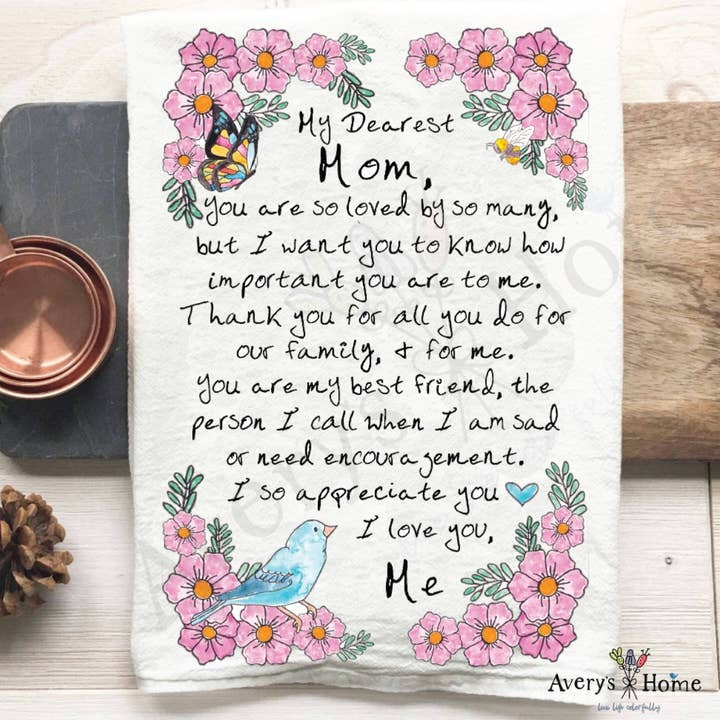 My Dearest
Mom,
You are so loved by so many,
but I want you to know how
important you are to me.
Thank you for all you do for
our family, & for me.
You are my best friend, the
person I call when I am sad
or need encouragement.
I so appreciate you
I love you,
Me
Avery's Home
live life colorfully
Avery's Home